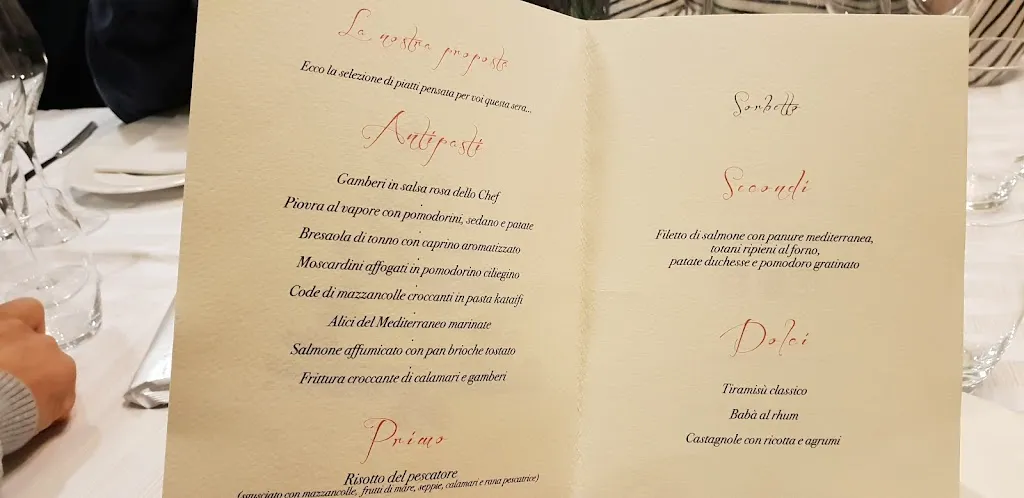 La nostra proposta
Ecco la selezione di piatti pensata per voi questa sera...
Antipasti
Gamberi in salsa rosa dello Chef
Piovra al vapore con pomodorini, sedano e patate
Bresaola di tonno con caprino aromatizzato
Moscardini affogati in pomodorino ciliegino
Code di mazzancolle croccanti in pasta kataifi
Alici del Mediterraneo marinate
Salmone affumicato con pan brioche tostato
Frittura croccante di calamari e gamberi
Primo
Risotto del pescatore
(sgusciato con mazzancolle, frutti di mare, seppie, calamari e rana pescatrice)
Sorbetto
Secondi
Filetto di salmone con panure mediterranea,
totani ripieni al forno,
patate duchesse e pomodoro gratinato
Dolci
Tiramisù classico
Babà al rhum
Castagnole con ricotta e agrumi